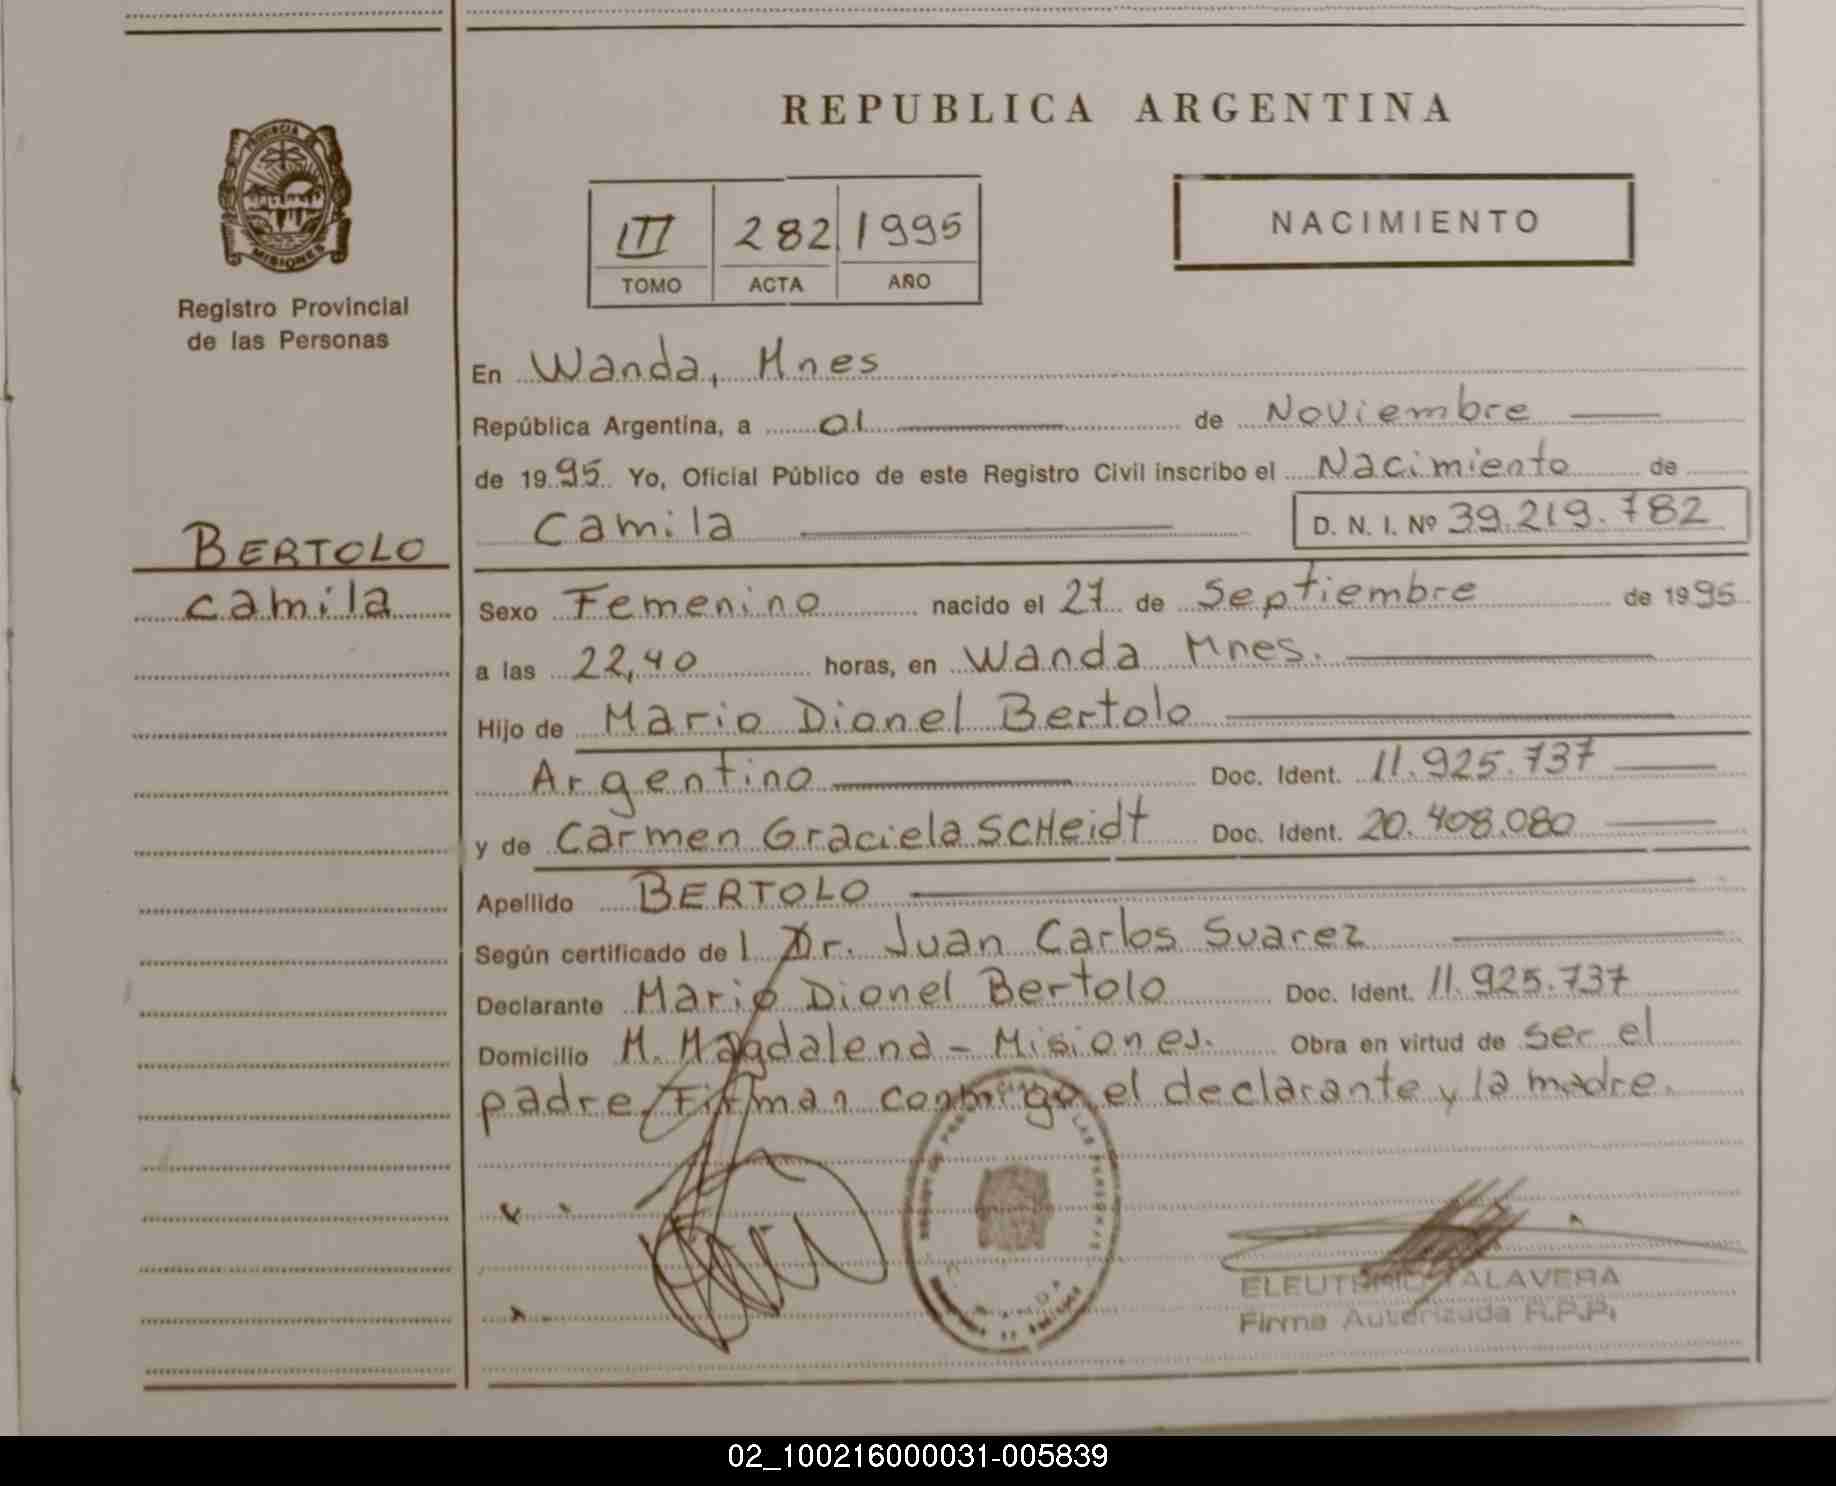 REPUBLICA ARGENTINA
PROVINCIA
MISIONES
Registro Provincial
de las Personas
III 282 1995
TOMO ACTA AÑO
NACIMIENTO
BERTOLO
Camila
En Wanda, Mnes
República Argentina, a 01 de Noviembre
de 1995 Yo, Oficial Público de este Registro Civil inscribo el Nacimiento de
Camila D. N. I. Nº 39.219.782
Sexo Femenino nacido el 27 de Septiembre de 1995
a las 22,40 horas, en Wanda Mnes.
Hijo de Mario Dionel Bertolo
Argentino Doc. Ident. 11.925.737
y de Carmen Graciela SCHeidt Doc. Ident. 20.408.080
Apellido BERTOLO
Según certificado de l Dr. Juan Carlos Suarez
Declarante Mario Dionel Bertolo Doc. Ident. 11.925.737
Domicilio M. Magdalena - Misiones. Obra en virtud de ser el
padre. Firman conmigo el declarante y la madre.
ELEUTERIO TALAVERA
Firma Autorizada R.P.P.
02_100216000031-005839